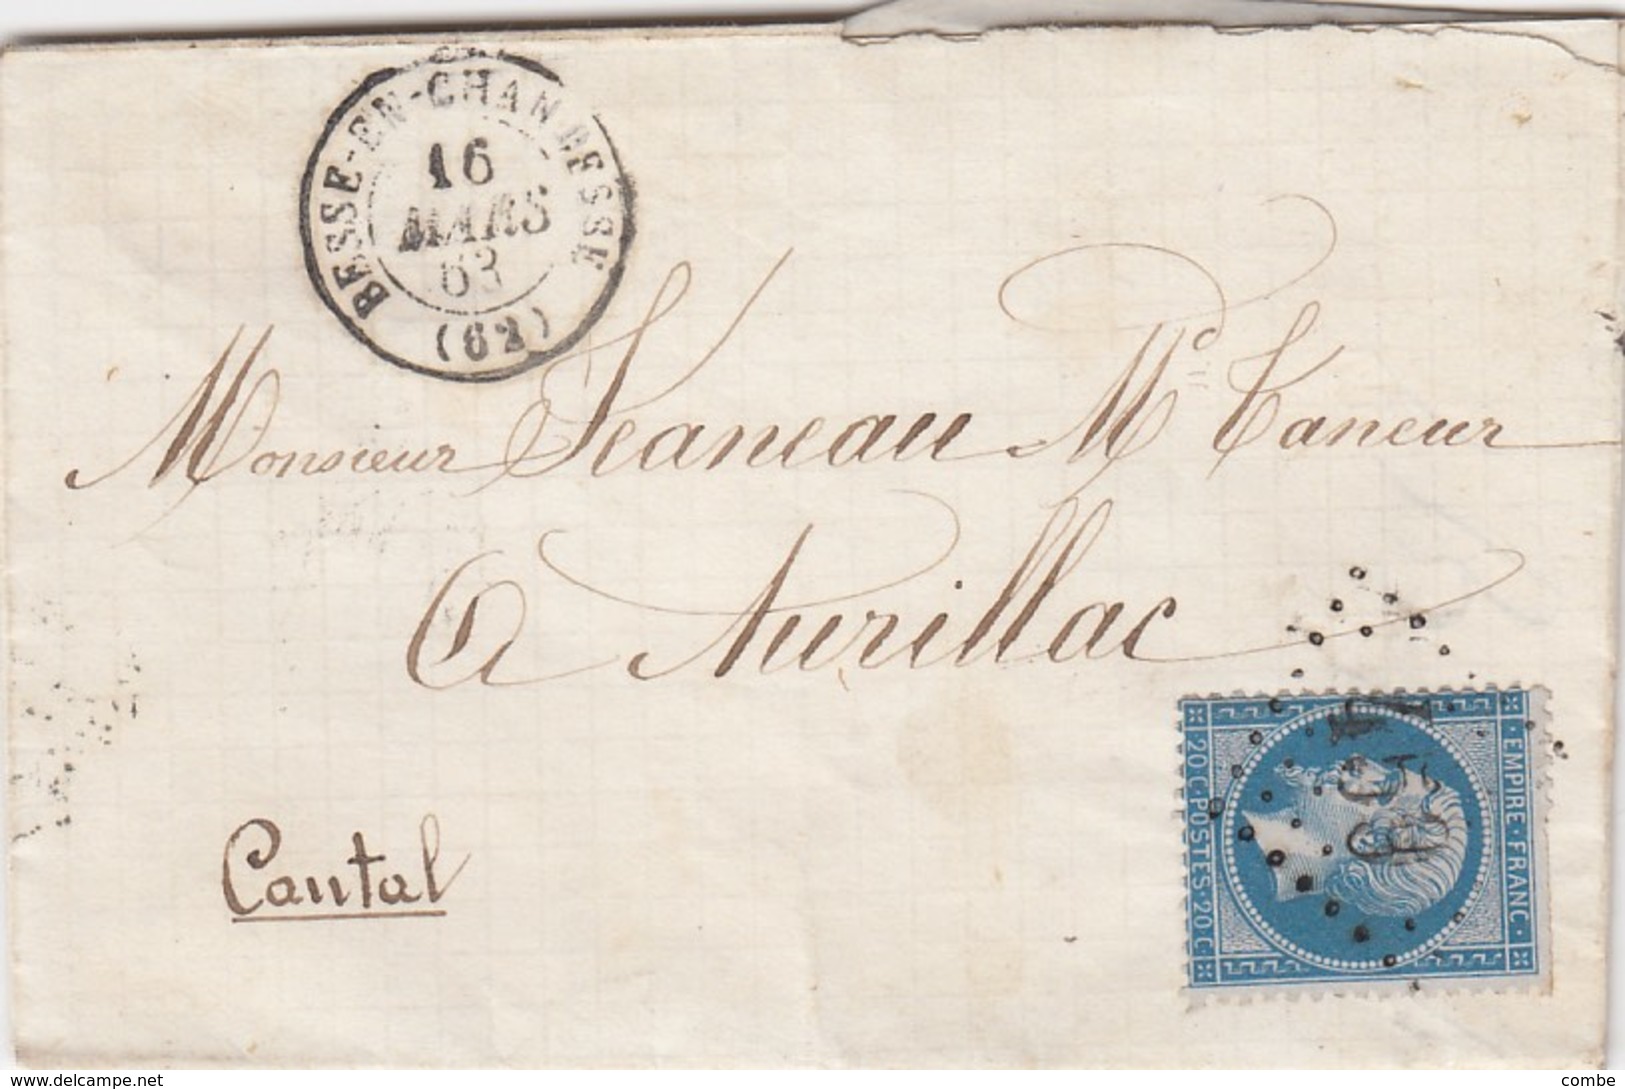 BESSE-EN-CHANDESSE
16
MARS
63
(62)
Monsieur Jeaneau Md Taneur
A Aurillac
Cantal
EMPIRE·FRANC·
20 C·POSTES·20 C·
delcampe.net
combe